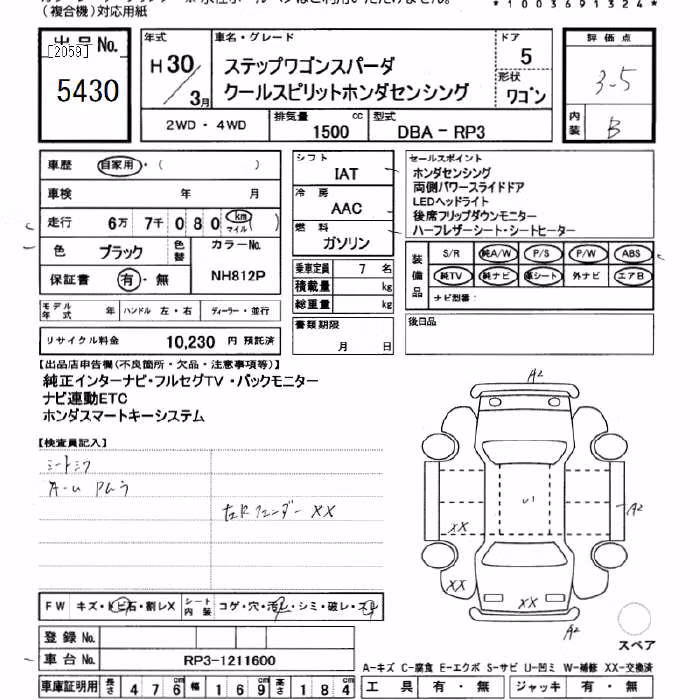 (複合機)対応用紙
*1003691324*
出品No.
[2059]
5430
年式
H30/3月
車名・グレード
ステップワゴンスパーダ
クールスピリットホンダセンシング
ドア
5
形状
ワゴン
評価点
3-5
内装
B
2WD・4WD
排気量
1500 cc
型式
DBA-RP3
車歴 自家用・( )
車検 年 月
走行 6万 7千 080 km マイル( )
色 ブラック 色替 カラーNo.
NH812P
保証書 有・無
モデル年式 年 ハンドル 左・右 ディーラー・並行
リサイクル料金 10,230 円 預託済
シフト
IAT
冷房
AAC
燃料
ガソリン
乗車定員 7 名
積載量 kg
総重量 kg
書類期限
月 日
セールスポイント
ホンダセンシング
両側パワースライドドア
LEDヘッドライト
後席フリップダウンモニター
ハーフレザーシート・シートヒーター
装備品
S/R 純A/W P/S P/W ABS
純TV 純ナビ 革シート 外ナビ エアB
ナビ型番:
後日品
【出品店申告欄(不良箇所・欠品・注意事項等)】
純正インターナビ・フルセグTV・バックモニター
ナビ連動ETC
ホンダスマートキーシステム
【検査員記入】
シートシワ
左Rフェンダー XX
A2
U1
A2
XX
XX
XX
A2
スペア
FW キズ・トビ石・割レX シート内装 コゲ・穴・汚レ・シミ・破レ・スレ
登録No.
車台No. RP3-1211600
車庫証明用 長さ 476 幅 169 高さ 184
A-キズ C-腐食 E-エクボ S-サビ U-凹ミ W-補修 XX-交換済
工具 有・無 ジャッキ 有・無